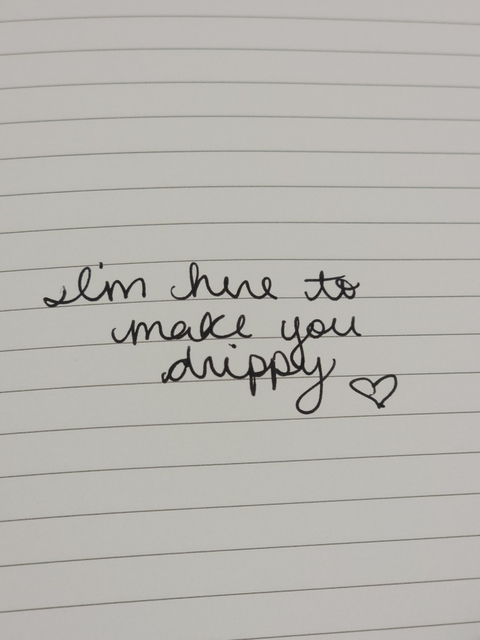 I'm here to
make you
drippy ♡